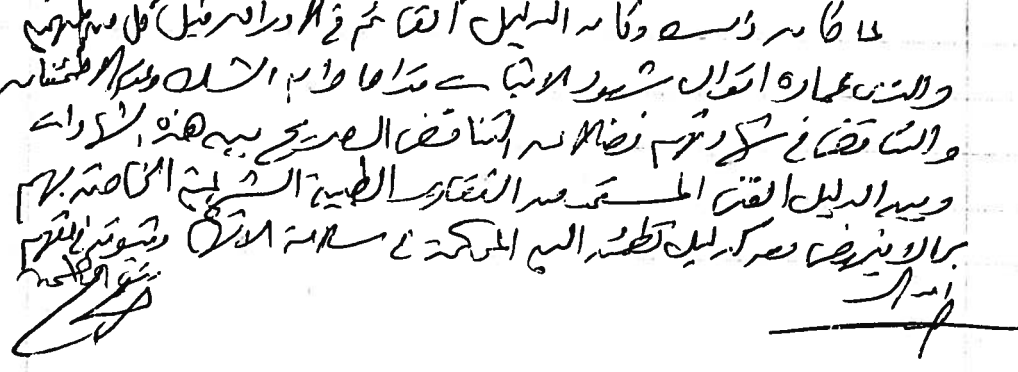 لما كان ذلك وكان الدليل القائم في الأوراق قبل كل من المتهمين
والذي عماده أقوال شهود الإثبات قد أحاطه الشك وعدم الاطمئنان
والتناقض في شهادتهم فضلا عن التناقض الصريح بين هذه الشهادات
وبين الدليل الفني المستمد من التقارير الطبية الشرعية الخاصة بهم
بما لا ينهض معه كدليل تطمئن إليه المحكمة في سلامة الإتهام وثبوته في حقهم